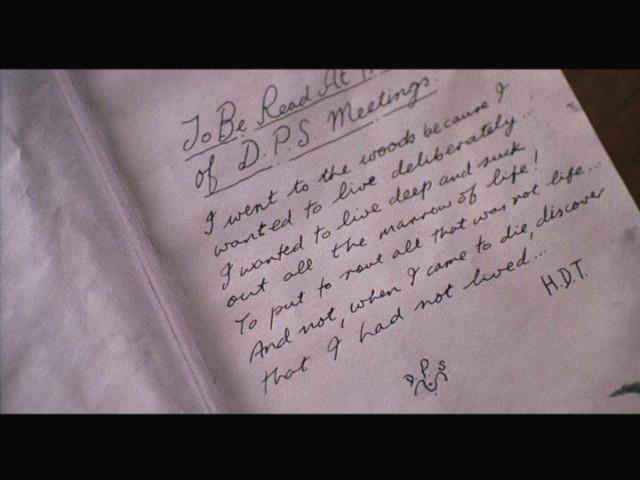 To Be Read At
of D.P.S. Meetings.
I went to the woods because I
wanted to live deliberately...
I wanted to live deep and suck
out all the marrow of life!
To put to rout all that was not life...
And not, when I came to die, discover
that I had not lived...
H.D.T.
D P S